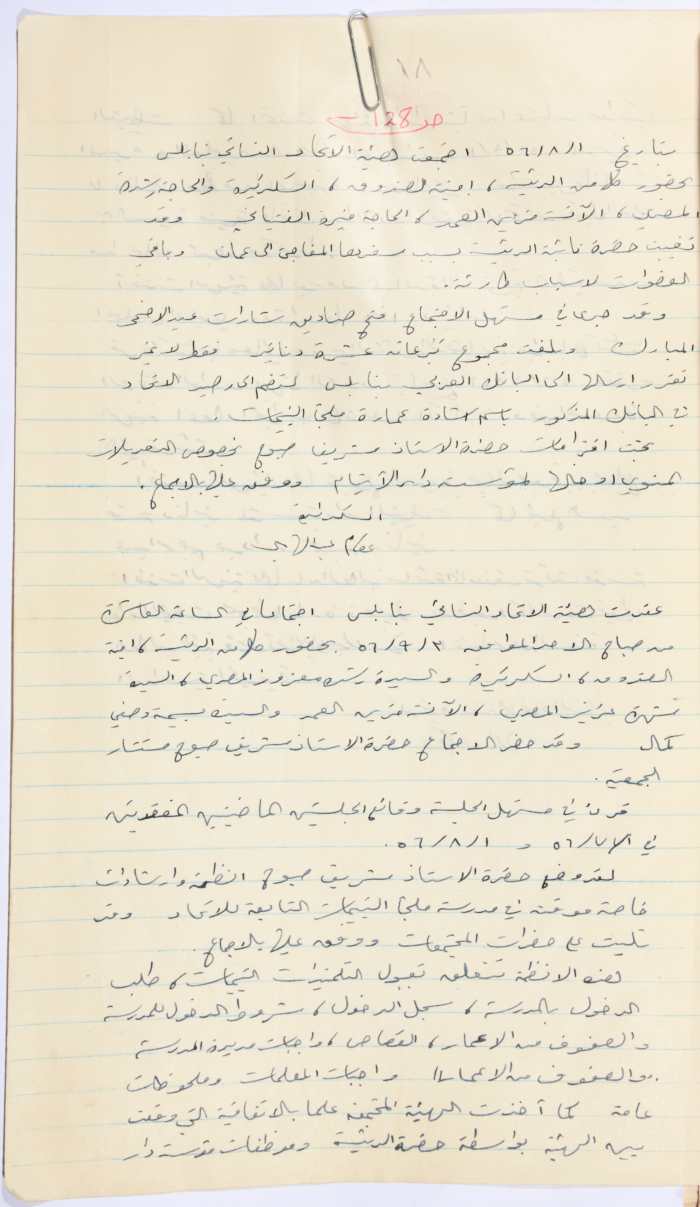 ١٨
صد 128
بتاريخ ٥٦/٨/١ اجتمعت هيئة الاتحاد النسائي بنابلس
بحضور كل من الرئيسة ، امينة الصندوق ، السكرتيرة والحاجة رشدة
المصري ، الآنسة فريزين العمد ، الحاجة منيرة الفتياني وقد
تغيبت حضرة نائبة الرئيسة بسبب سفرها المفاجئ الى عمان وباقي
العضوات لاسباب طارئة .
وقد جرى في مستهل الاجتماع فتح صناديق شارات عيد الاضحى
المبارك وبلغت مجموع تبرعاته عشرة دنانير فقط لا غير
تقرر ارسالها الى البانك العربي بنابلس لتضم الى رصيد الاتحاد
في البانك المذكور باسم استادة عمارة ملجأ اليتيمات .
بحثت اقتراحات حضرة الاستاذ شريف صبوح بخصوص التعديلات
المنوي ادخالها لمؤسسة دار الأيتام ووفق عليها بالاجماع .
السكرتيرة
عصام عبد الهادي
عقدت هيئة الاتحاد النسائي بنابلس اجتماعا في الساعة العاشرة
من صباح الاحد الموافق ٥٦/٩/٣ بحضور كل من الرئيسة ، امينة
الصندوق ، السكرتيرة والسيدة رشدة معزوز المصري ، السيدة
شهرة عزيز المصري ، الآنسة فريزين العمد والسيدة بسيمة وصفي
كمال وقد حضر الاجتماع حضرة الاستاذ شريف صبوح مستشار
الجمعية .
قرئ في مستهل الجلسة وقائع الجلستين الماضيتين المنعقدتين
في ٥٦/٧/ و ٥٦/٨/١ .
لقد وضع حضرة الاستاذ شريف صبوح انظمة وارشادات
خاصة موقتة في مدرسة ملجأ اليتيمات التابعة للاتحاد وقد
تليت على حضرات المجتمعات ووفق عليها بالاجماع .
هذه الانظمة تتعلق بقبول التلميذات اليتيمات ، طلب
الدخول بالمدرسة ، سجل الدخول ، شروط الدخول للمدرسة
والصفوف من الاعمار ، القصاص ، واجبات مديرة المدرسة
والصفوف من الاعمار واجبات المعلمات وملحوظات
عامة كما أخذت الهيئة المجتمعة علما بالاتفاقية التي وقعت
بين الهيئة بواسطة حضرة الرئيسة وموظفات مؤسسة دار